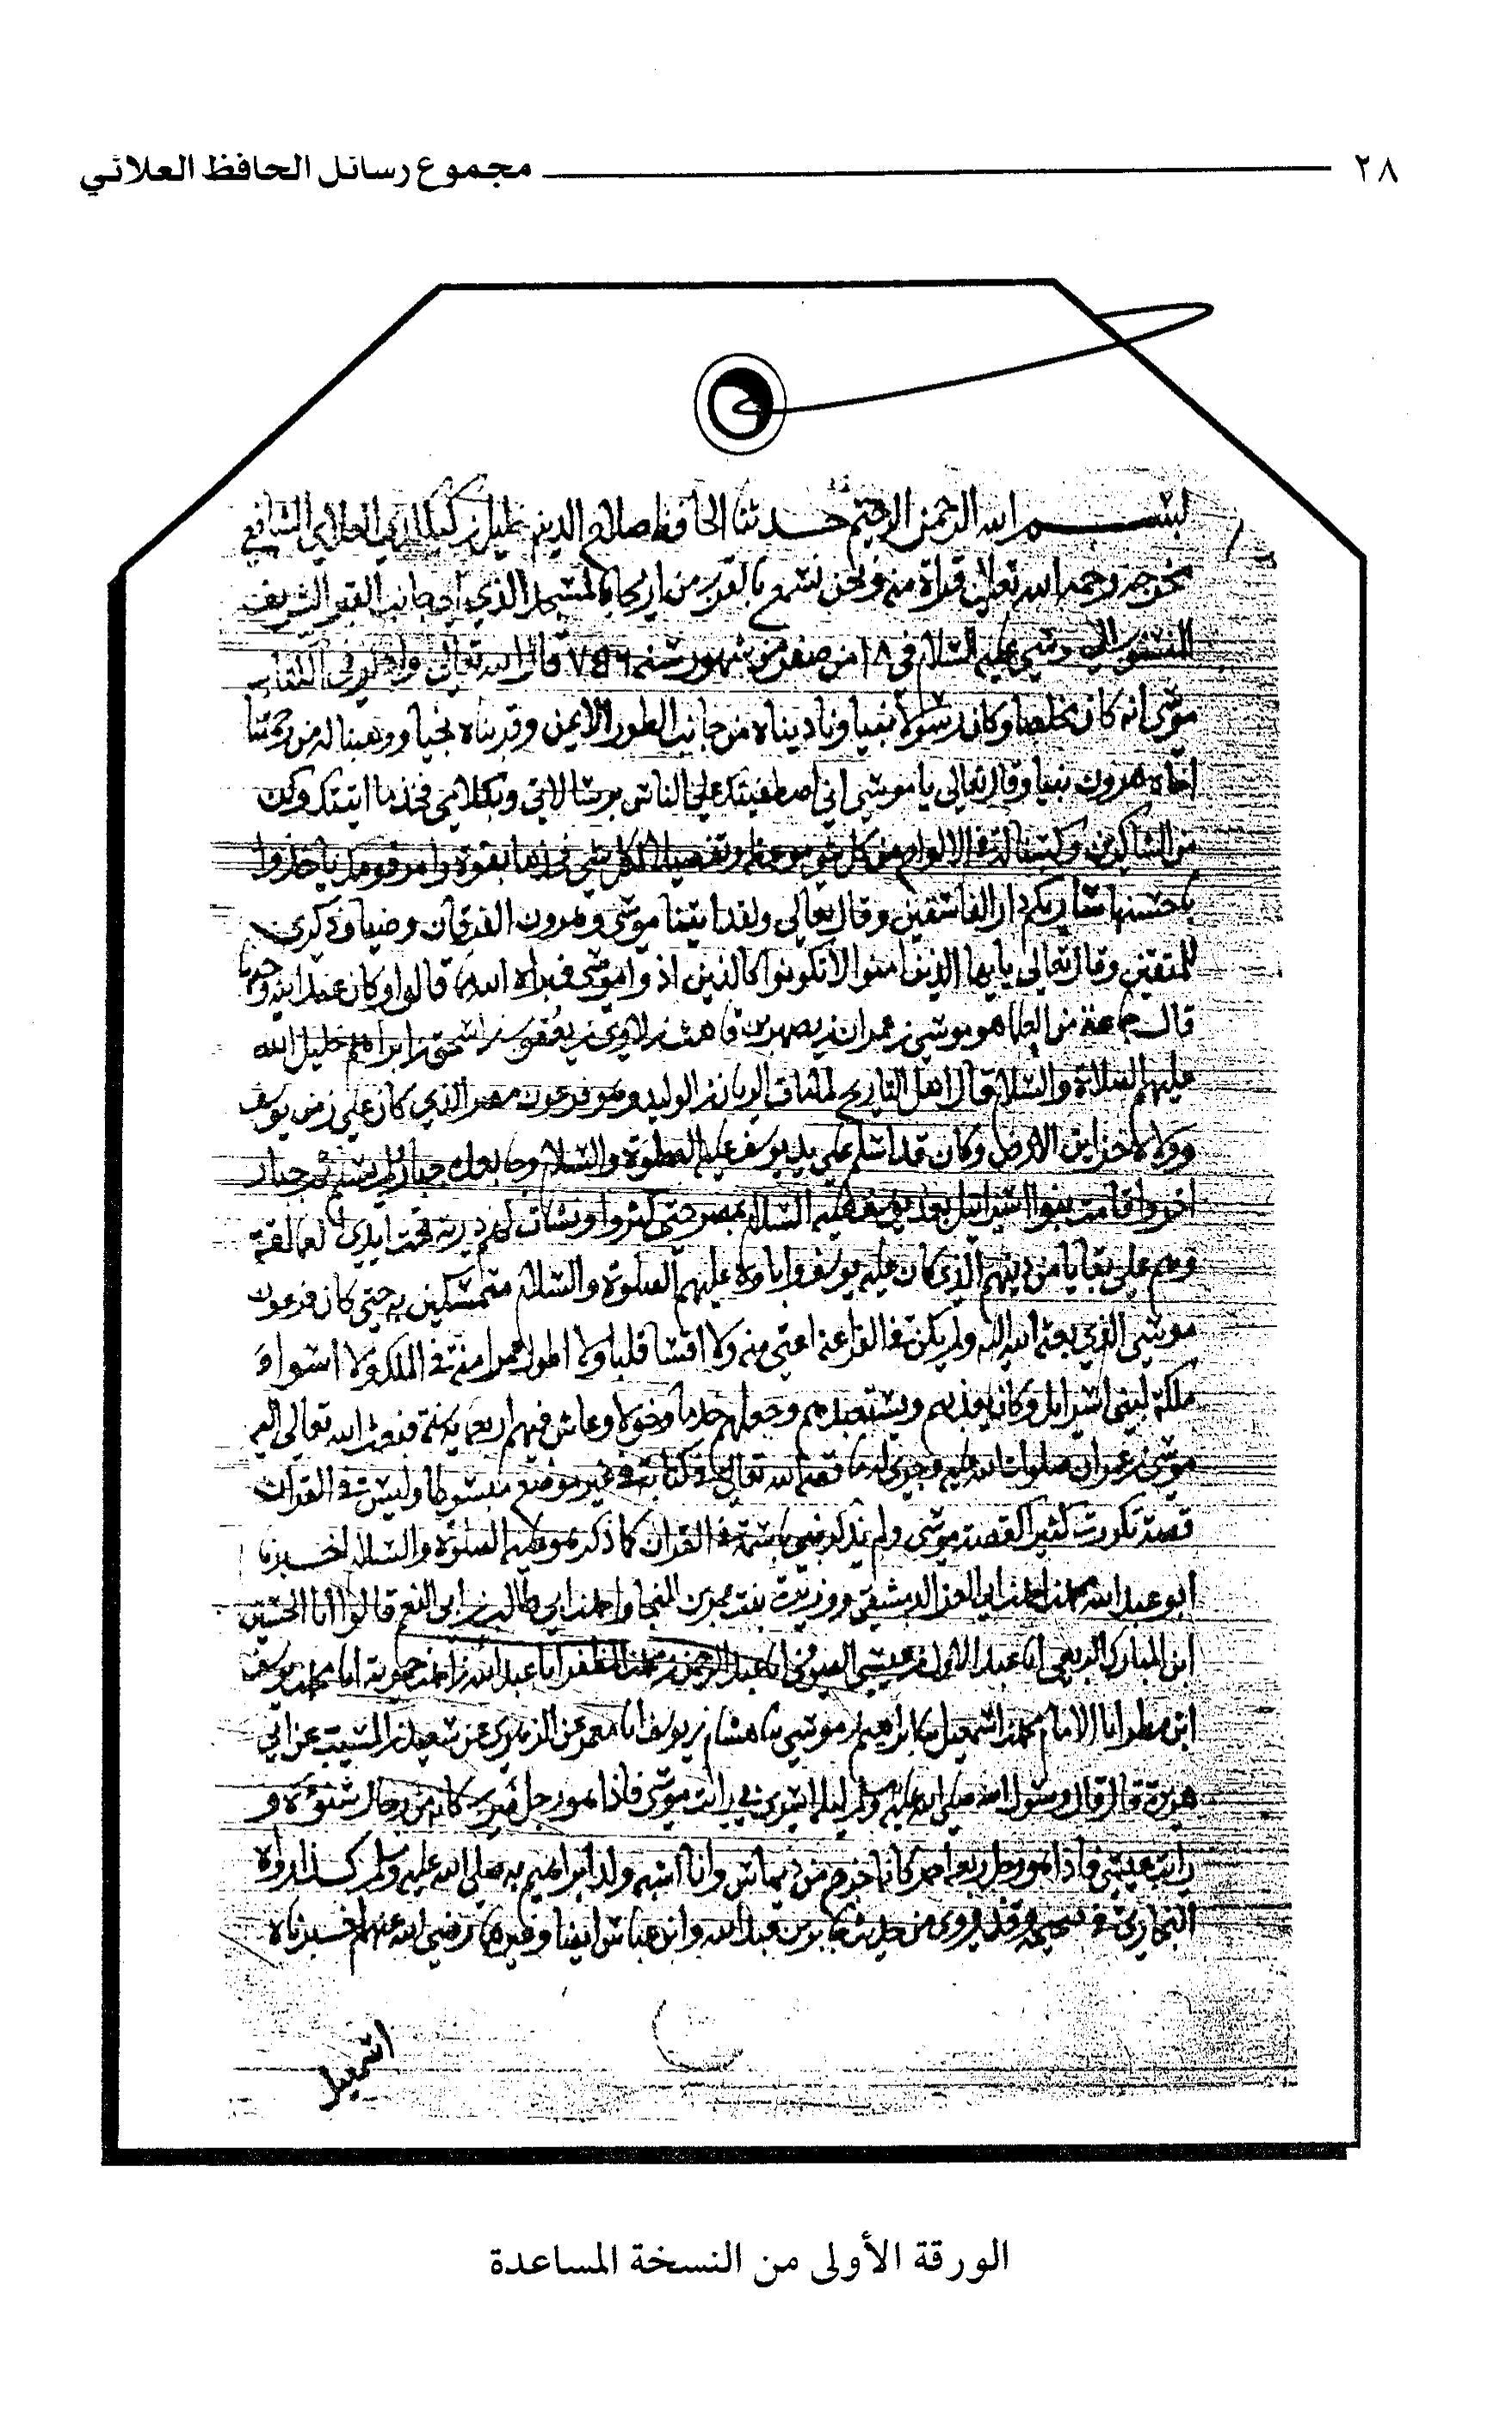 ٢٨ مجموع رسائل الحافظ العلائي
بسم الله الرحمن الرحيم حدثنا الحافظ صلاح الدين خليل بن كيكلدي العلاي الشافعي
مخرجه رحمه الله تعالى قراة منه ونحن نسمع بالقرب من اريحا بالمسجد الذي الي جانب القبر الشريف
المنسوب الي موسي عليه السلام في ١٨ من صفر من شهور سنه قال الله تعالى واذكر في الكتاب
موسى انه كان مخلصا وكان رسولا نبيا وناديناه من جانب الطور الايمن وقربناه نجيا ووهبنا له من رحمتنا
اخاه هرون نبيا وقال تعالى يا موسى اني اصطفيتك على الناس برسالاتي وبكلامي فخذ ما اتيتك وكن
من الشاكرين وكتبنا له في الالواح من كل شي موعظه وتفصيلا لكل شي فخذها بقوة وامر قومك ياخذوا
باحسنها ساريكم دار الفاسقين وقال تعالى ولقد اتينا موسى وهرون الفرقان وضيا وذكرى
للمتقين وقال تعالى يايها الذين امنوا لا تكونوا كالذين اذوا موسى فبراه الله مما قالوا وكان عند الله وجيها
قال جماعة من العلما هو موسى بن عمران بن يصهر بن قاهث بن لاوي بن يعقوب بن اسحق بن ابراهيم خليل الله
عليهم الصلاة والسلام قال اهل التاريخ لما مات الريان بن الوليد وهو فرعون مصر الذي كان على زمن يوسف
وولاه خزاين الارض وكان قد اسلم على يد يوسف عليه الصلوة والسلام وجا بعده جبار لم يسلم ثم جبار
اخر واقامت بنوا اسرائيل بعد يوسف عليه السلام بمصر حتى كثروا ونشات لهم ذرية تحت ايدي العمالقة
وهم على بقايا من دينهم الذي كان عليه يوسف واباوه عليهم الصلوة والسلام متمسكين به حتى كان فرعون
موسى الذي بعثه الله اليه ولم يكن في الفراعنه اعتى منه ولا اقسا قلبا ولا اطول عمرا منه في الملك ولا اسوا
ملكة لبني اسرايل وكان يعذبهم ويستعبدهم وجعلهم خدما وخولا وعاش فيهم اربعماية سنة فبعث الله تعالى اليهم
موسى بن عمران صلوات الله عليه وجرى له ما قصه الله تعالى في كتابه في غير موضع مبسوطا وليس في القران
قصة تكررت كثيرا كقصة موسى ولم يذكر نبي باسمه في القران كما ذكر هو عليه الصلوة والسلام اخبرنا
ابو عبد الله محمد بن احمد بن ابي العز الدمشقي ووزيرة بنت عمر بن المنجا واحمد بن ابي طالب بن ابي النعم قالوا انا الحسين
ابن المبارك الربعي انا عبد الاول بن عيسى الصوفي انا عبد الرحمن بن محمد بن المظفر انا عبد الله بن احمد بن حمويه انا محمد بن يوسف
ابن مطر انا الامام محمد بن اسمعيل ثنا ابراهيم بن موسى ثنا هشام بن يوسف انا معمر عن الزهري عن سعيد بن المسيب عن ابي
هريرة قال قال رسول الله صلى الله عليه وسلم ليلة اسري بي رايت موسى فاذا هو رجل ضرب كانه من رجال شنوءة و
رايت عيسى فاذا هو رجل ربعة احمر كانما خرج من ديماس وانا اشبه ولد ابراهيم به صلى الله عليه وسلم كذا رواه
البخاري في صحيحه وقد روي من حديث جابر بن عبد الله وابن عباس ايضا وغيرهما رضي الله عنهم اخبرناه
اسمعيل
الورقة الأولى من النسخة المساعدة